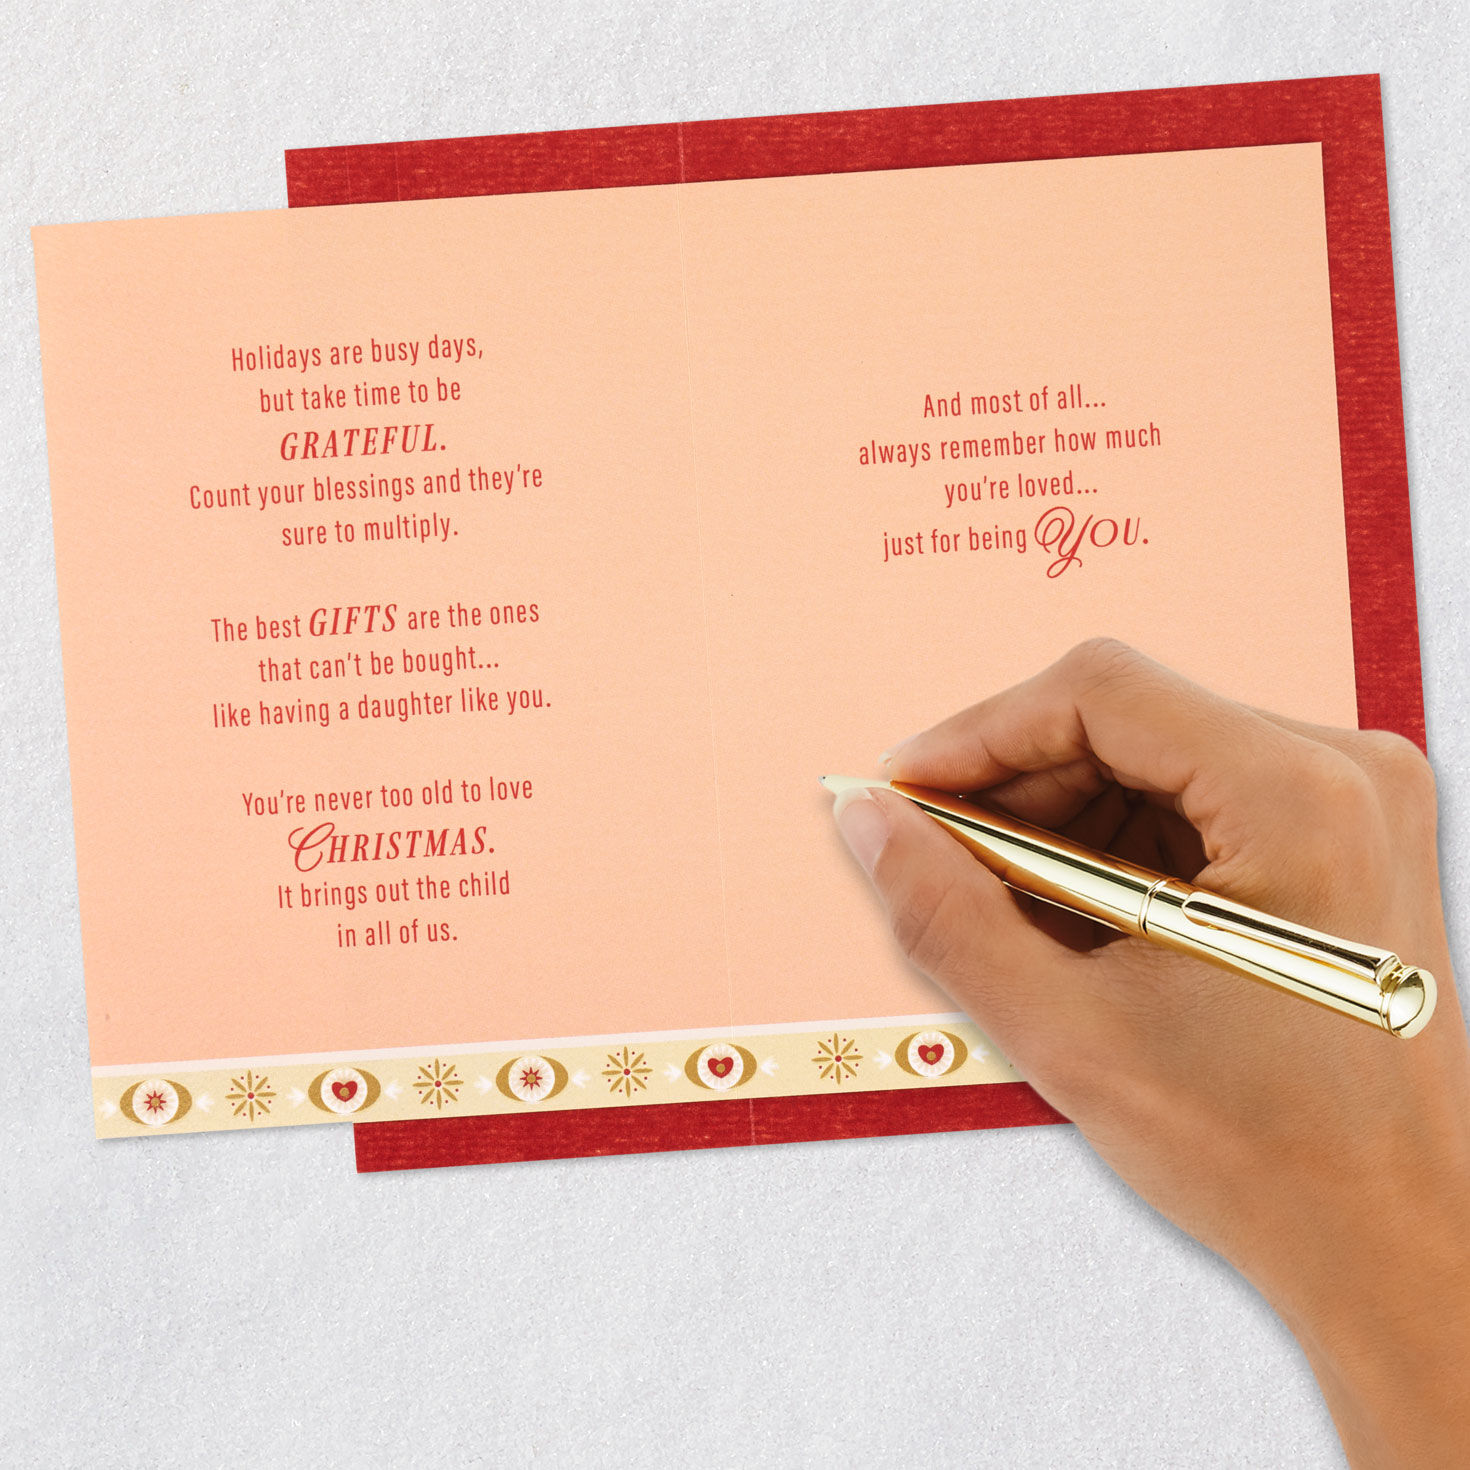 Holidays are busy days,
but take time to be
GRATEFUL.
Count your blessings and they're
sure to multiply.
The best GIFTS are the ones
that can't be bought...
like having a daughter like you.
You're never too old to love
CHRISTMAS.
It brings out the child
in all of us.
And most of all...
always remember how much
you're loved...
just for being YOU.